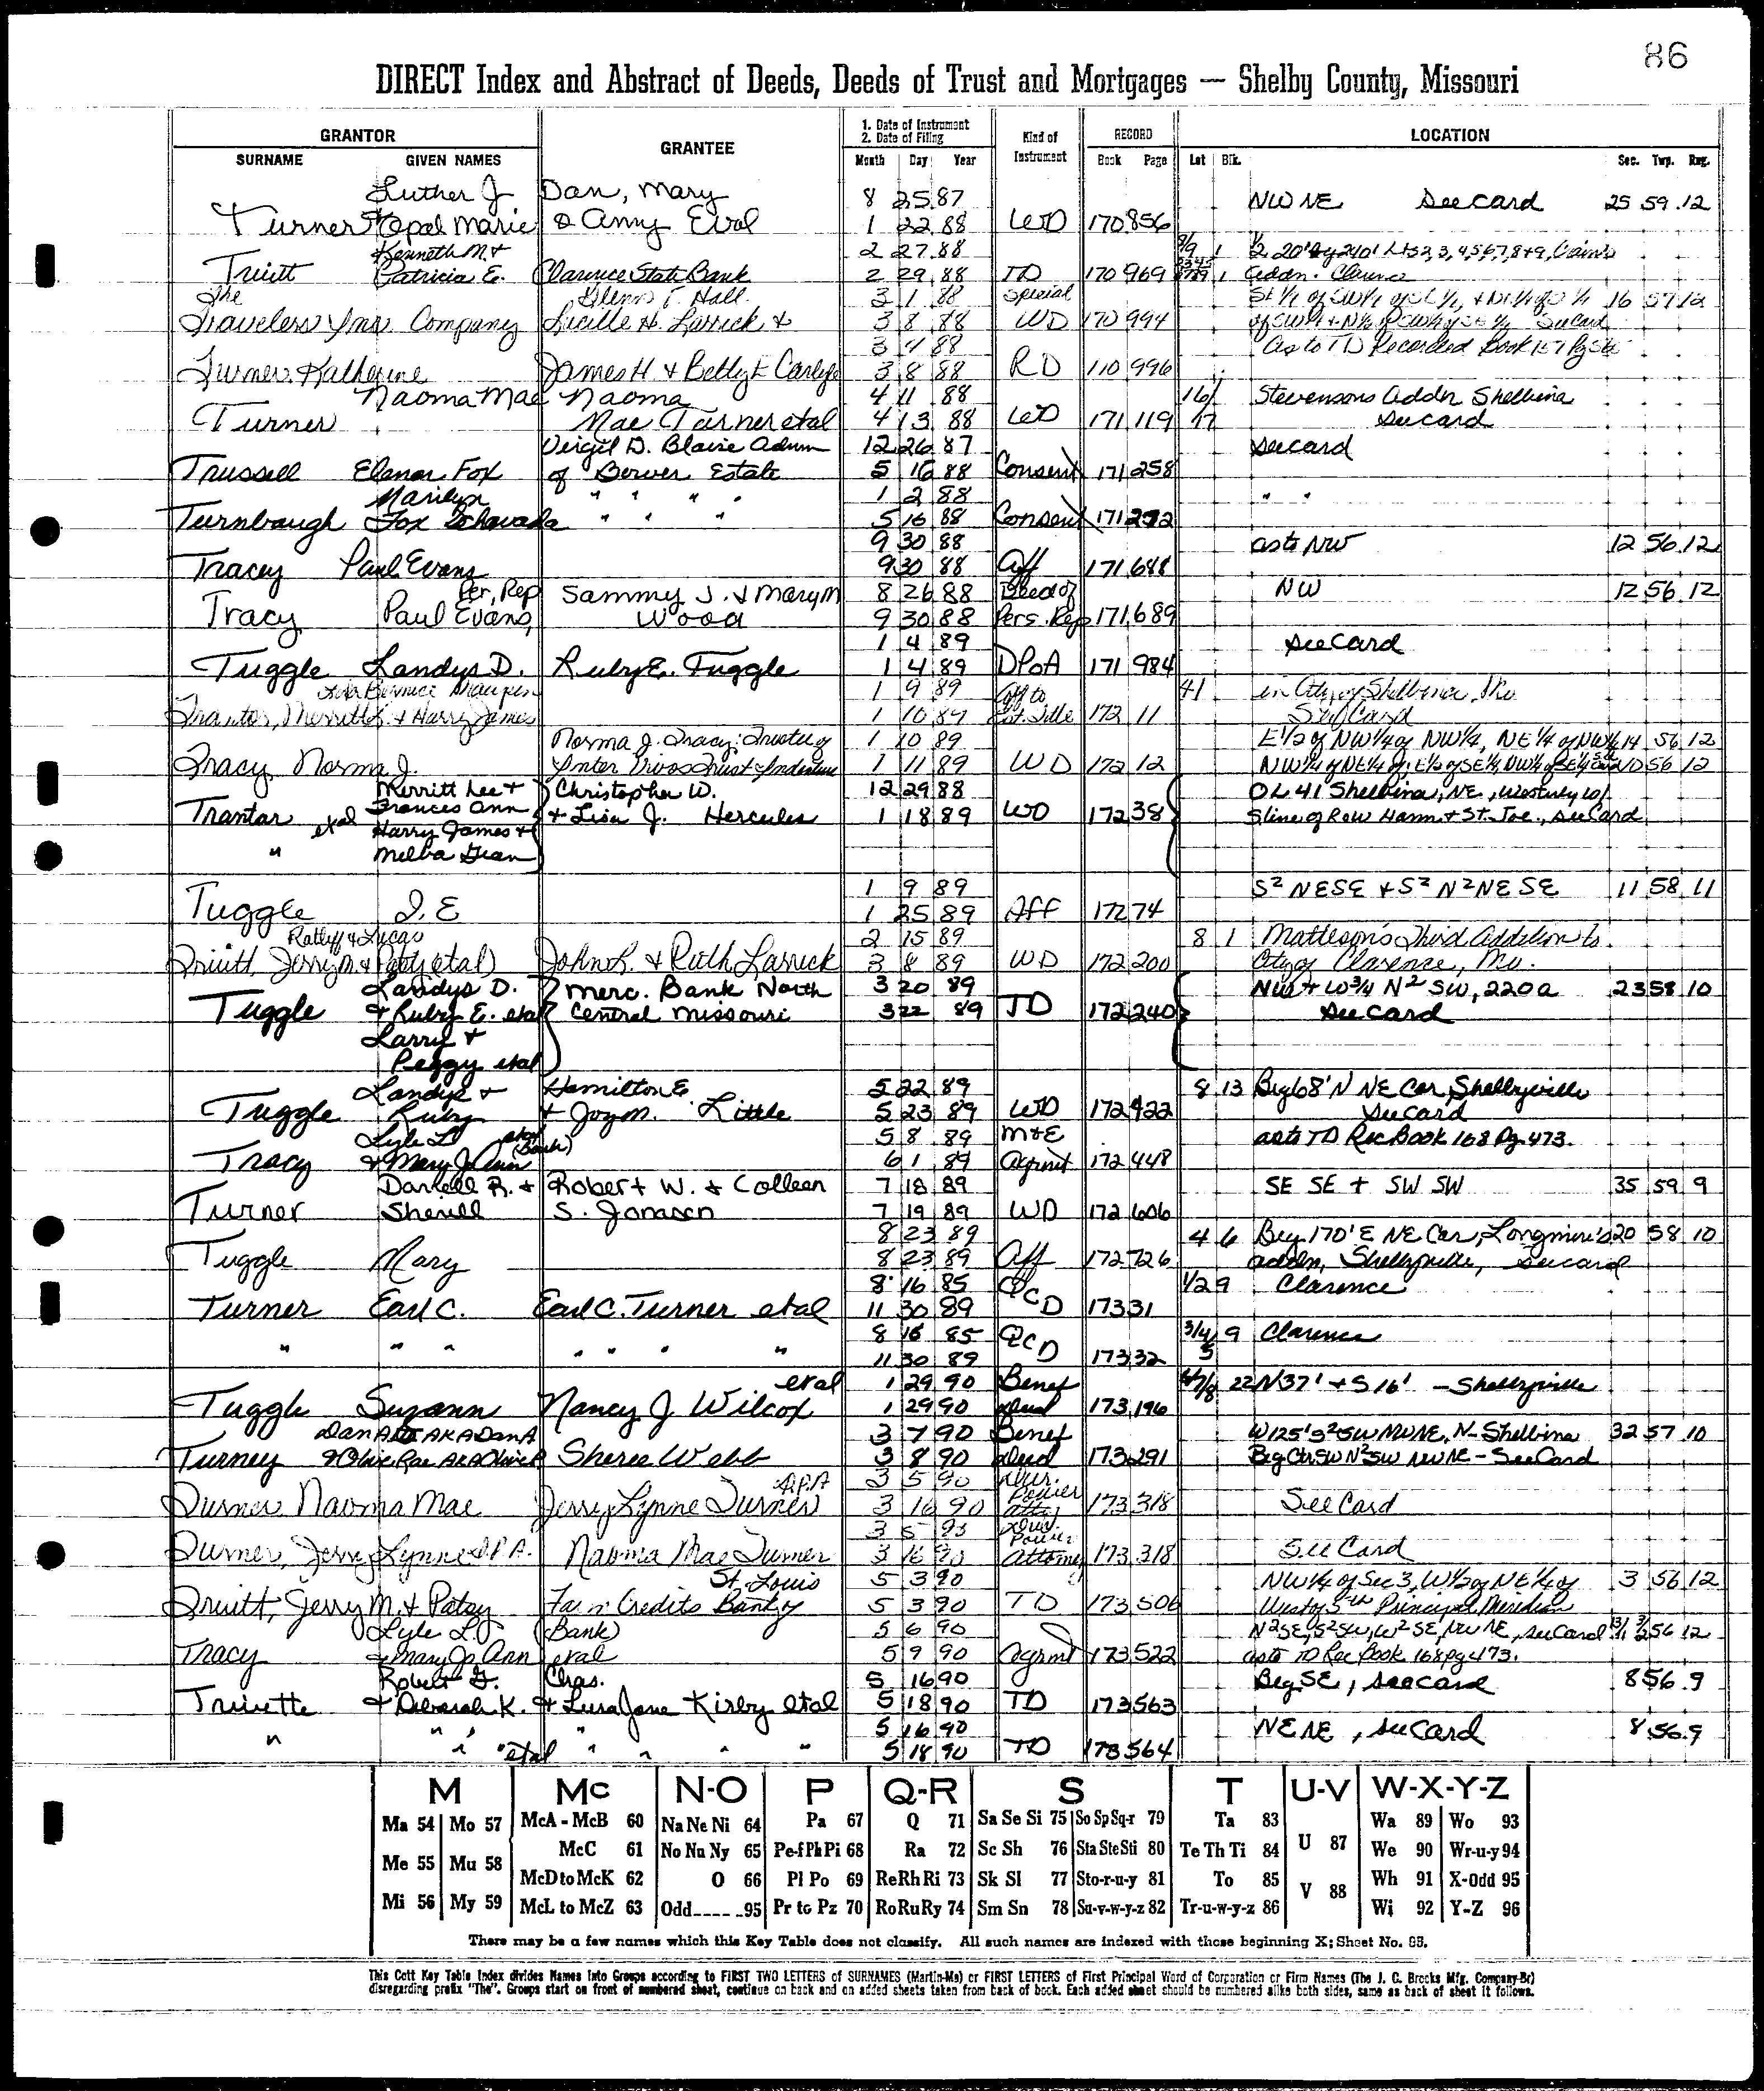 86
DIRECT Index and Abstract of Deeds, Deeds of Trust and Mortgages — Shelby County, Missouri
GRANTOR GRANTEE 1. Date of Instrument 2. Date of Filing Kind of Instrument RECORD LOCATION
SURNAME GIVEN NAMES Month Day Year Book Page Lot Blk. Sec. Twp. Rng.
Luther J Dan, Mary 8 25 87 NW NE See card 25 59 12
Turner & Opal Marie & Amy Eval 1 22 88 WD 170 856
Kenneth M. & 2 27 88
Truitt Patricia E. Clarence State Bank 2 29 88 TD 170 969 1 addn. Clarence
The Glenn T. Hall 3 1 88 Special 16 57 12
Travelers Insr Company Lucille H. Larrick & 3 8 88 WD 170 994 See Card
3 4 88 As to TD Recorded Book 157 Pg
Turner, Katherine James H. & Betty L Carlyle 3 8 88 RD 110 996
Naoma Mae Naoma 4 11 88 16/ Stevensons addn Shelbina
Turner Mae Turner etal 4 13 88 WD 171 119 17 See card
Virgil D. Blaise Admn 12 26 87 See card
Trussell Elenor Fox of Bower Estate 5 16 88 Consent 171 258
Marilyn " " " " 1 2 88 " "
Turnbaugh Fox " " " 5 16 88 Consent 171 272
9 30 88 as to NW 12 56 12
Tracey Paul Evans 9 30 88 Aff 171 688
Per, Rep Sammy J. & Mary M 8 26 88 Deed of NW 12 56 12
Tracy Paul Evans, Wood 9 30 88 Pers. Rep 171 689
1 4 89 See Card
Tuggle Landys D. Ruby E. Tuggle 1 4 89 DPoA 171 984
1 9 89 Aff to 41 in City of Shelbina, Mo
Trantor, Merritt L. & Harry James 1 10 89 Est. Title 172 11 See Card
Norma J. Tracy; Trustee of 1 10 89 E 1/2 of NW 1/4 of NW 1/4, NE 1/4 of NW 1/4 14 56 12
Tracy Norma J. Inter Vivos Trust Indenture 1 11 89 WD 172 12 56 12
Merritt Lee & Christopher W. 12 29 88 OL 41 Shelbina, NE, Westerly
Trantar etal Frances Ann & Lisa J. Hercules 1 18 89 WD 172 38 S line of Row Hann & St. Joe., See Card
Harry James &
" Melba Jean
1 9 89 S² NESE + S² N² NE SE 11 58 11
Tuggle I. E 1 25 89 Aff 172 74
Ratliff & Lucas 2 15 89 8 1 Matteson's Third Addition to
Truitt, Jerry M & Patsy (etal) John R. & Ruth Larrick 3 8 89 WD 172 200 City of Clarence, Mo.
Landys D. Merc. Bank North 3 20 89 NW + W 3/4 N² SW, 220 a 23 58 10
Tuggle & Ruby E. etal Central Missouri 3 22 89 TD 172 240 See card
Larry &
Peggy etal
Landys & Hamilton E 5 22 89 8 13 Beg 68' N NE Cor, Shelbyville
Tuggle Ruby & Joy M. Little 5 23 89 WD 172 422 See card
Lyle L etal 5 8 89 M&E as to TD Rec Book 168 Pg. 473.
Tracy & Mary Jo Ann (Bank) 6 1 89 Agrmt 172 448
Darrell R. & Robert W. & Colleen 7 18 89 SE SE + SW SW 35 59 9
Turner Sherill S. Janasen 7 19 89 WD 172 606
8 23 89 4 6 Beg 170' E NE Cor, Longmire's 20 58 10
Tuggle Mary 8 23 89 Aff 172 726 addn, Shelbyville, See card
8 16 85 QCD 1/2 9 Clarence
Turner Earl C. Earl C. Turner etal 11 30 89 173 31
8 16 85 QCD 3/4 9 Clarence
" " " " " " " 11 30 89 173 32 5
etal 1 29 90 Benef 6/7/8 22 N 37' + S 16' - Shelbyville
Tuggle Suzann Nancy J Wilcox 1 29 90 Deed 173 196
Dan A AKA Dan A 3 7 90 Benef W 125' S² SW NW NE, N- Shelbina 32 57 10
Turney & Olive Rae AKA Olive R Sheree Webb 3 8 90 Deed 173 291 Beg Ctr SW N² SW NW NE - See Card
D.P.A 3 5 90 Dur. Power
Turner Naoma Mae Jerry Lynne Turner 3 16 90 Atty 173 318 See Card
3 5 Dur. Power
Turner, Jerry Lynne D.P.A. Naoma Mae Turner 3 16 90 Attorney 173 318 See Card
St. Louis 5 3 90 NW 1/4 of Sec 3, W 1/2 of NE 1/4 of 3 56 12
Truitt, Jerry M. & Patsy Farm Credits Bank of 5 3 90 TD 173 506 West of 5th Principal Meridian
Lyle L. (Bank) 5 6 90 N² SE, S² SW, W² SE, NW NE, See Card 56 12
Tracy & Mary Jo Ann etal 5 9 90 Agrmt 173 522 as to TD Rec Book 168 pg 473.
Robert G. Chas. 5 16 90 Beg SE, See card 8 56 9
Truette & Deborah K. & Lura Jane Kirby etal 5 18 90 TD 173 563
5 16 90 NE NE, See Card 8 56 9
" " " etal " " " " 5 18 90 TD 173 564
M Mc N-O P Q-R S T U-V W-X-Y-Z
Ma 54 Mo 57 McA - McB 60 Na Ne Ni 64 Pa 67 Q 71 Sa Se Si 75 So Sp Sq-r 79 Ta 83 Wa 89 Wo 93
McC 61 No Nu Ny 65 Pe-f Ph Pi 68 Ra 72 Sc Sh 76 Sta Ste Sti 80 Te Th Ti 84 U 87 We 90 Wr-u-y 94
Me 55 Mu 58 McD to McK 62 O 66 Pl Po 69 Re Rh Ri 73 Sk Sl 77 Sto-r-u-y 81 To 85 V 88 Wh 91 X-Odd 95
Mi 56 My 59 McL to McZ 63 Odd 95 Pr to Pz 70 Ro Ru Ry 74 Sm Sn 78 Su-v-w-y-z 82 Tr-u-w-y-z 86 Wi 92 Y-Z 96
There may be a few names which this Key Table does not classify. All such names are indexed with those beginning X; Sheet No. 95.
This Cott Key Table Index divides Names Into Groups according to FIRST TWO LETTERS of SURNAMES (Martin-Ma) or FIRST LETTERS of First Principal Word of Corporation or Firm Names (The J. C. Brocks Mfg. Company-Br)
disregarding prefix "The". Groups start on front of numbered sheet, continue on back and on added sheets taken from back of book. Each added sheet should be numbered alike both sides, same as back of sheet it follows.